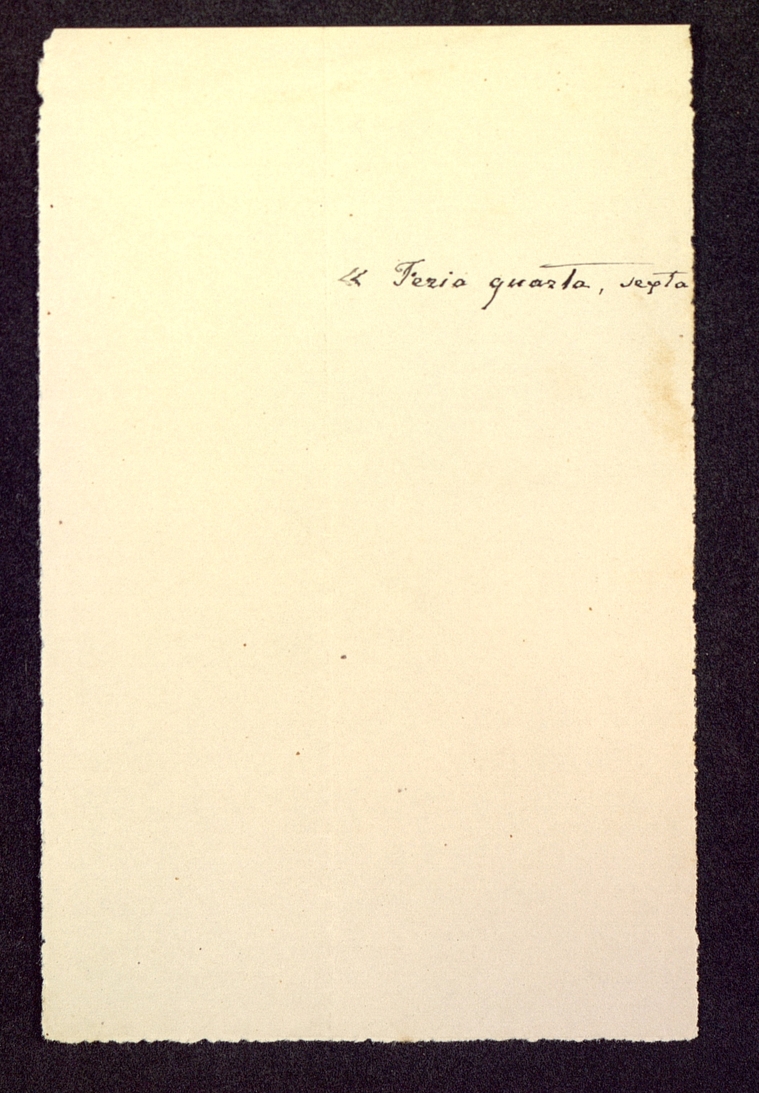 « Feria quarta, septa